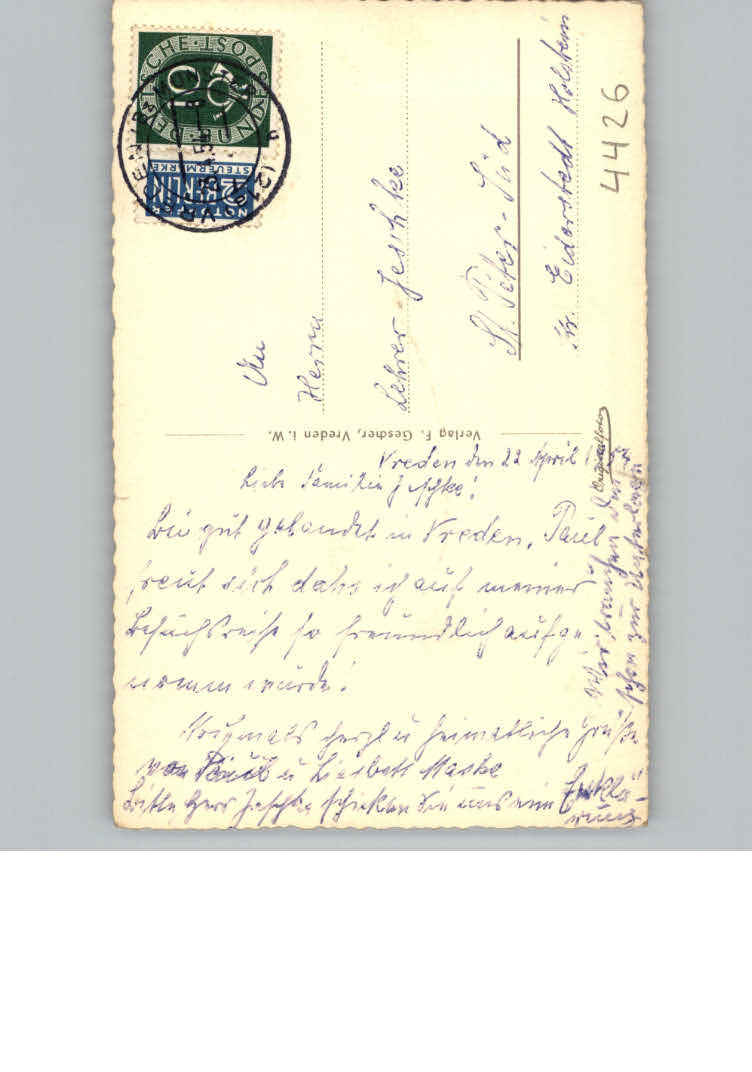 DEUTSCHE BUNDESPOST
10
NOTOPFER
2 BERLIN
STEUERMARKE
VREDEN
(21a)
4426
An
Herrn
Lehrer Jeschke
St. Peter-Süd
Kr. Eiderstedt Holstein
Verlag F. Gesdner, Vreden i. W.
Originalfoto
Vreden den 22 April
Liebe Familie Jeschke!
Bin gut gelandet in Vreden. Paul
freut sich dahs ich auf meiner
Besuchsreise so freundlich aufge
nommen wurde!
Nochmals herzl u heimatliche Grüße
von Paul u Liesbett Maske
Bitte Herr Jeschke schicken Sie uns eine Erklä-
rung
Wir brauchen
zur Unterlagen